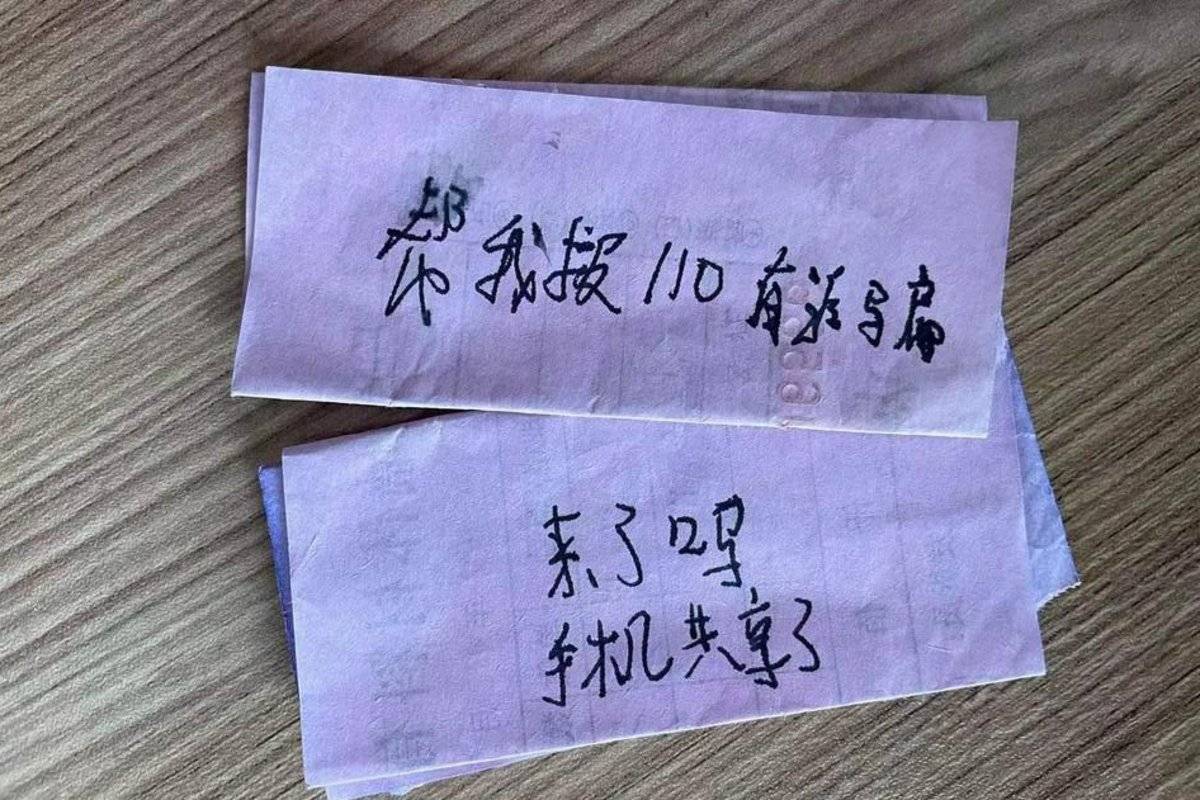 帮我按110有诈骗
来了吗
手机共享了